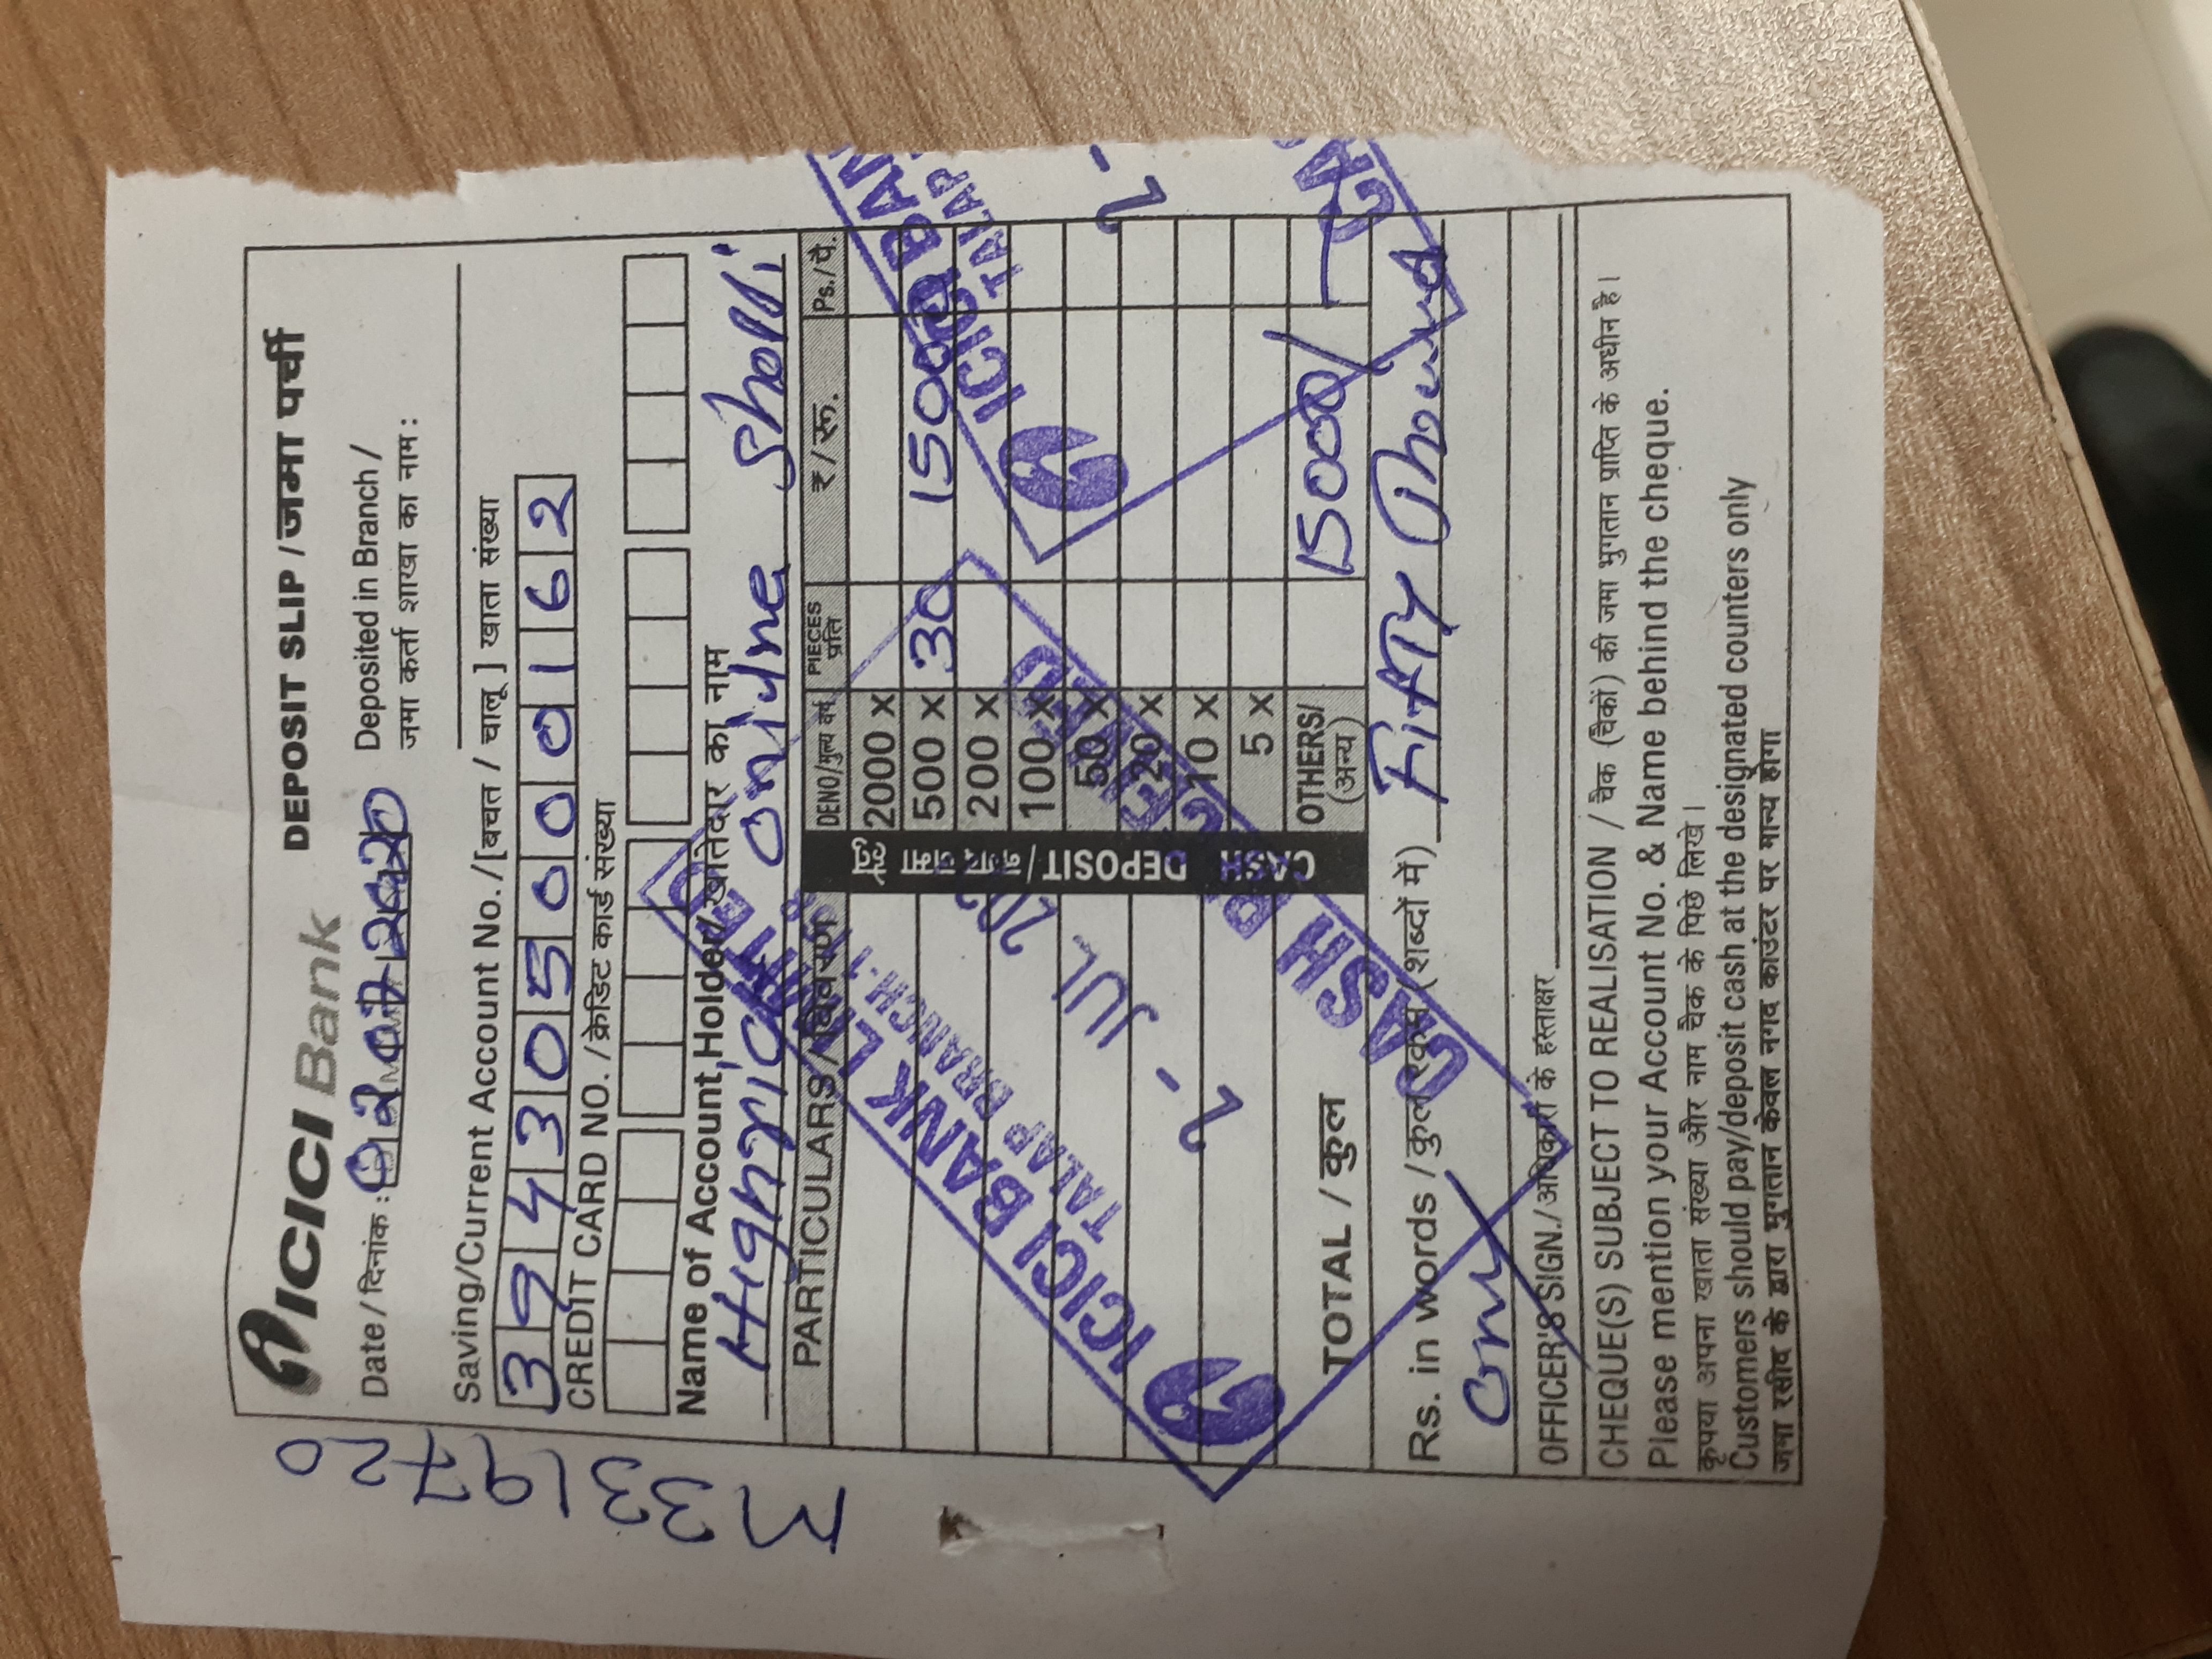 M3319720
ICICI Bank
DEPOSIT SLIP / जमा पर्ची
Date / दिनांक : 02072020
Deposited in Branch /
जमा कर्ता शाखा का नाम :
Saving/Current Account No. / [बचत / चालू ] खाता संख्या
394305000162
CREDIT CARD NO. / क्रेडिट कार्ड संख्या
Name of Account Holder/खातेदार का नाम
Highrich online Sholli
PARTICULARS/विवरण DENO/मुल्य वर्ग PIECES प्रति ₹ / रू. Ps./पै.
CASH DEPOSIT / नगद जमा हेतु
2000 x
500 x 30 15000
200 x
100 x
50 x
20 x
10 x
5 x
OTHERS/ (अन्य)
TOTAL / कुल 15000/
Rs. in words / कुल रकम (शब्दों में) Fifty
OFFICER'S SIGN./अधिकारी के हस्ताक्षर
CHEQUE(S) SUBJECT TO REALISATION / चैक (चैकों) की जमा भुगतान प्राप्ति के अधीन है।
Please mention your Account No. & Name behind the cheque.
कृपया अपना खाता संख्या और नाम चैक के पिछे लिखे।
Customers should pay/deposit cash at the designated counters only
जमा रसीद के द्वारा भुगतान केवल नगद काउंटर पर मान्य होगा
ICICI BANK LIMITED
TALAP BRANCH-
2 - JUL 202
CASH RECEIVED
ICICI BAN
TALAP
2 -
CA